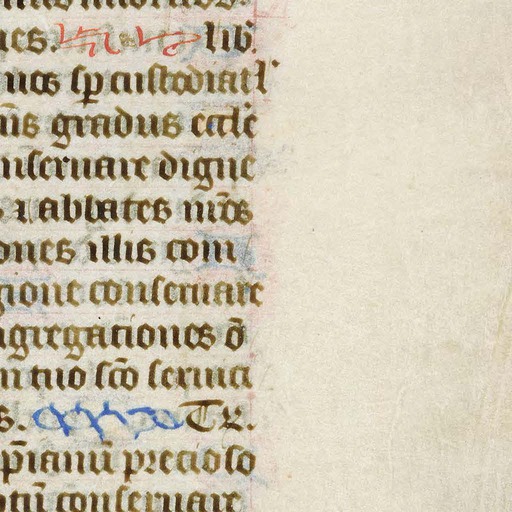 nes. lib̄.
nos sp̱ custodiat l'
ūs gradus eccl̄e
nseruare digne
s ⁊ abbates n̄ros
ones illis com
gione conseruare
ngregationes ō
n tuo sc̄o seruici
s. Te r.
p̄ianū precioso
conseruare